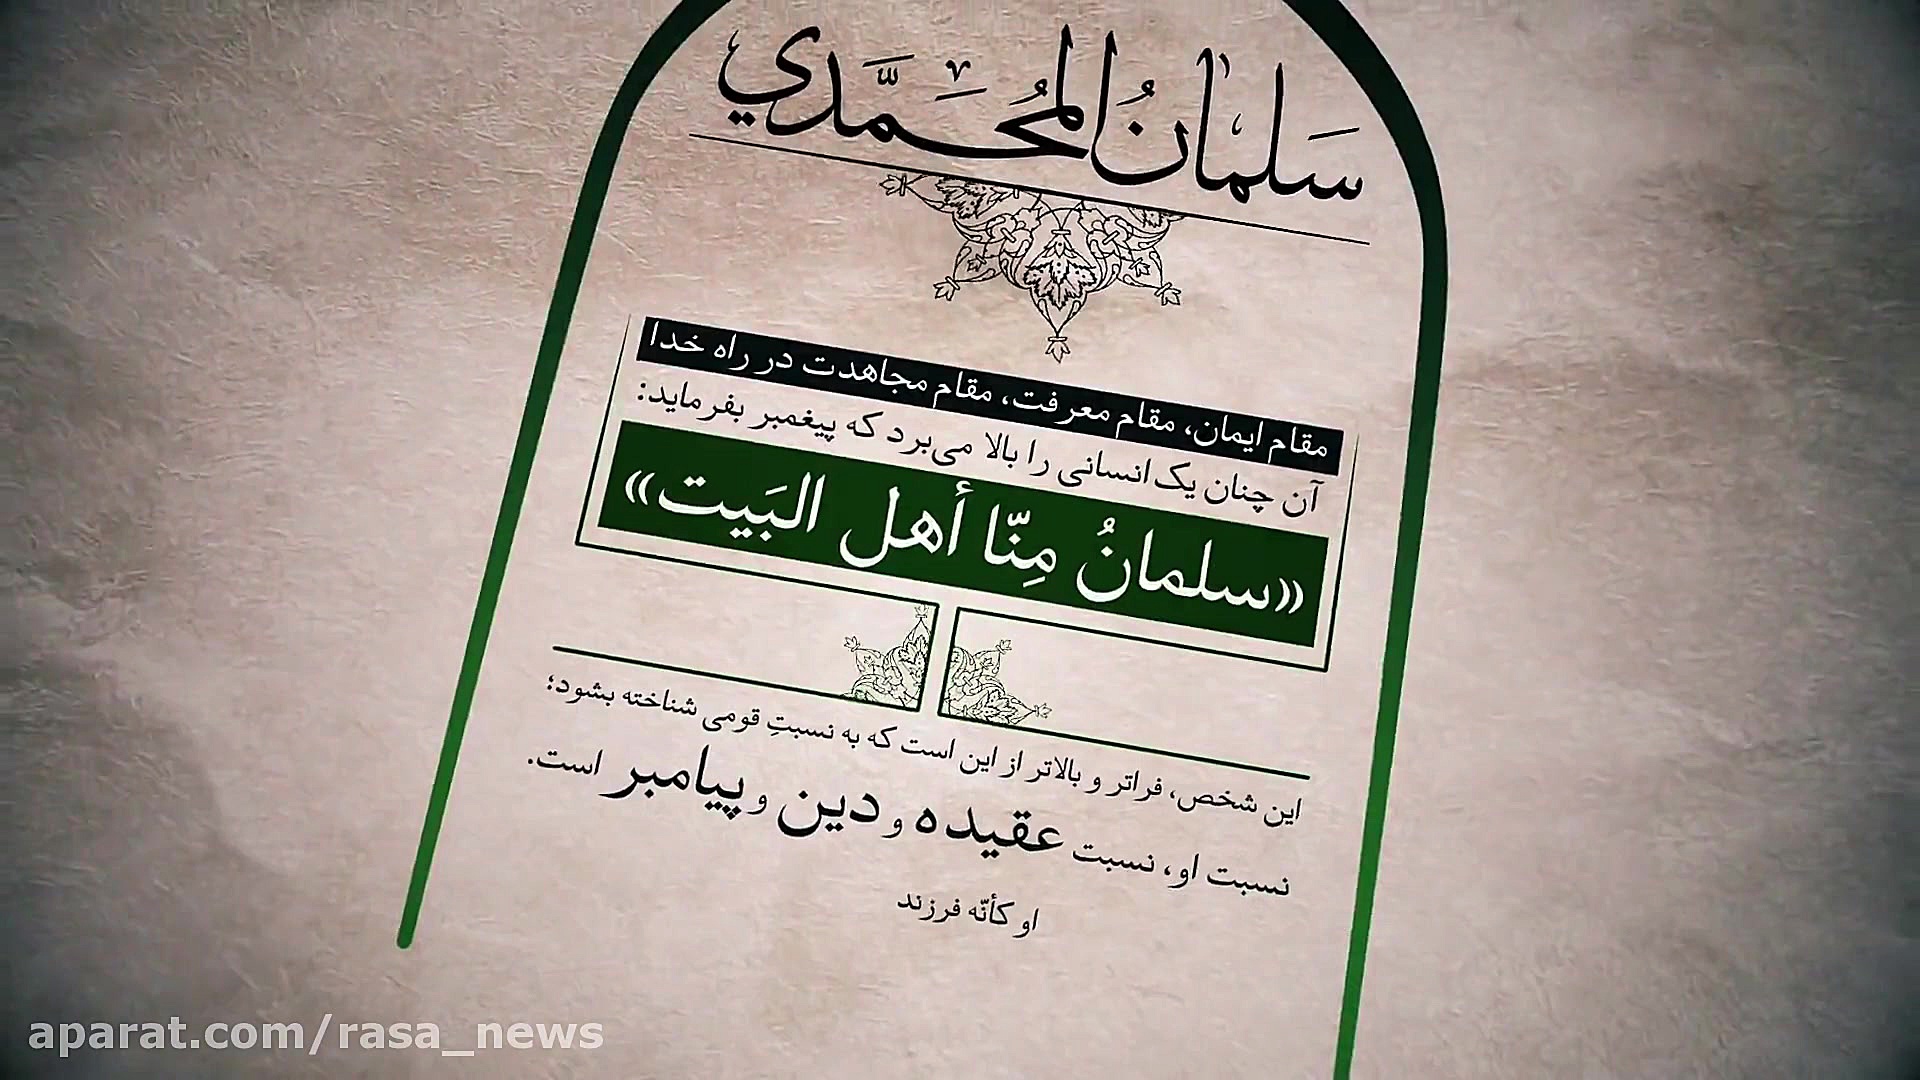 سَلمانُ المُحَمَّدي
مقام ایمان، مقام معرفت، مقام مجاهدت در راه خدا
آن چنان یک انسانی را بالا می‌برد که پیغمبر بفرماید:
«سلمانُ مِنّا أهل البَیت»
این شخص، فراتر و بالاتر از این است که به نسبتِ قومی شناخته بشود؛
نسبت او، نسبت عقیده و دین و پیامبر است.
او کأنّه فرزند
aparat.com/rasa_news